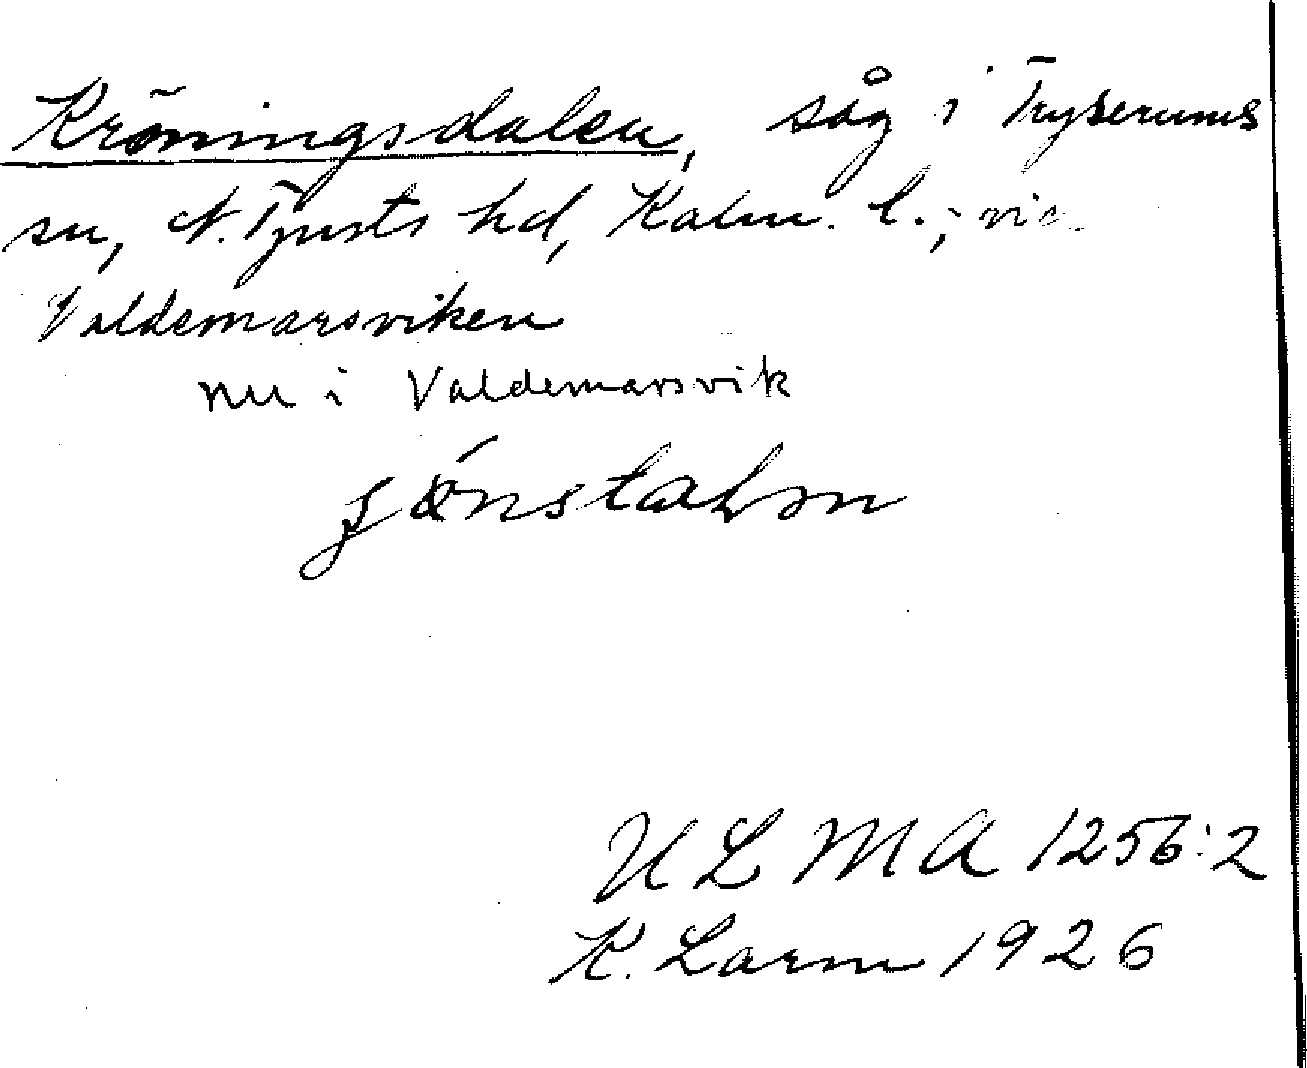 Kröningsdalen, såg i Tryserums
sn, N. Tjusts hd, Kalm. l.; vid
Valdemarsviken
nu i Valdemarsvik
ULMA 1256:2
K. Larm 1926